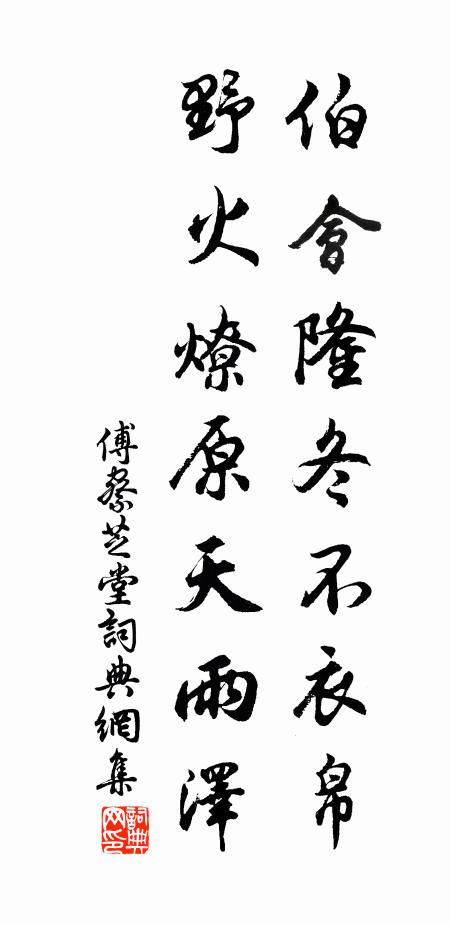 伯會隆冬不衣帛
野火燎原天雨澤
傅蔡芝堂詞典網集
詞典网印